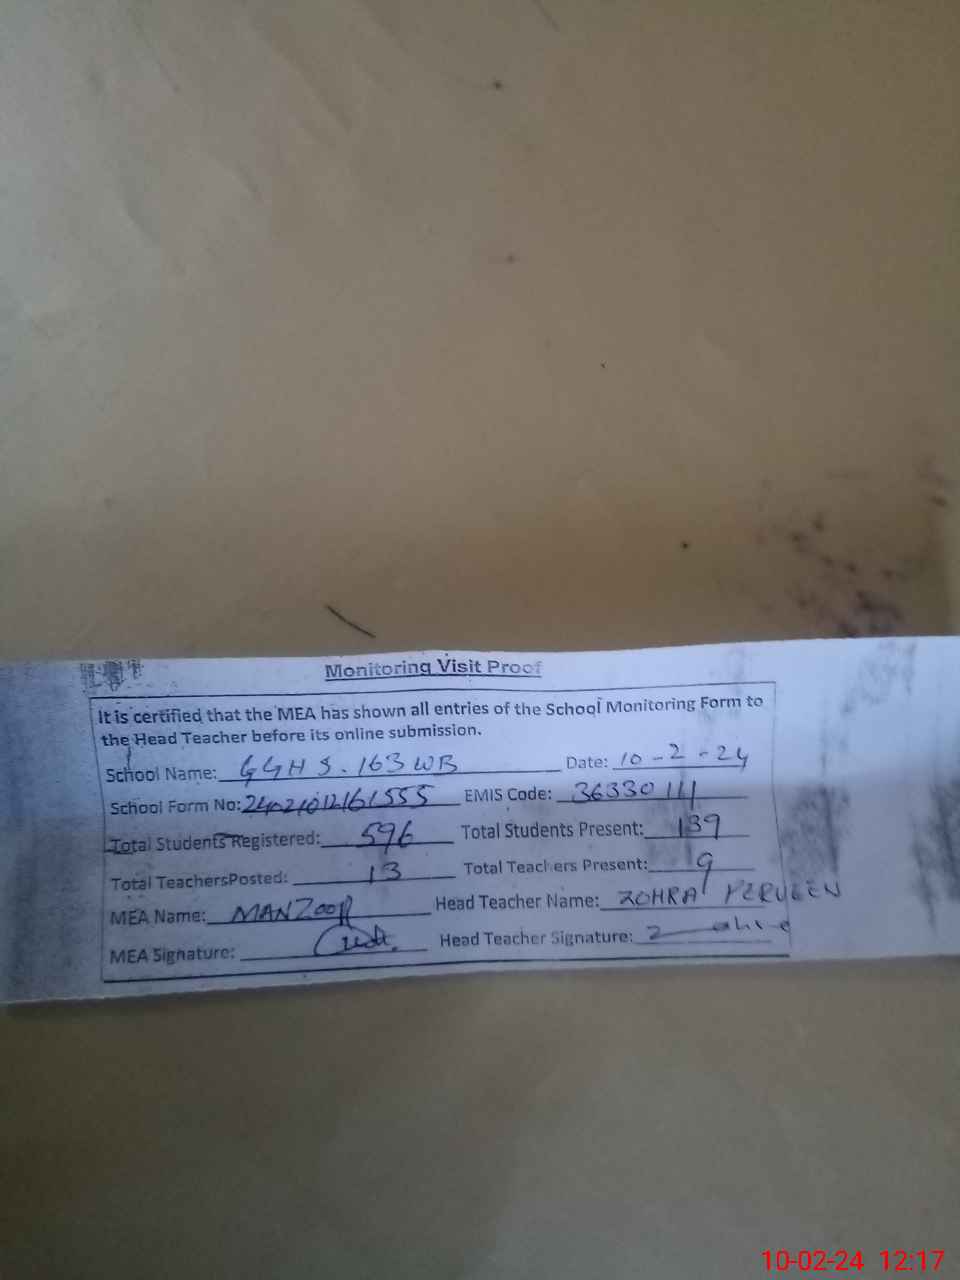 Monitoring Visit Proof
It is certified that the MEA has shown all entries of the School Monitoring Form to
the Head Teacher before its online submission.
School Name: GGHS. 163 WB Date: 10-2-24
School Form No: EMIS Code: 36330111
Total Students Registered: 596 Total Students Present: 139
Total TeachersPosted: 13 Total Teachers Present: 9
MEA Name: MANZOOR Head Teacher Name: ZOHRA PERVEEN
MEA Signature: Head Teacher Signature:
10-02-24 12:17